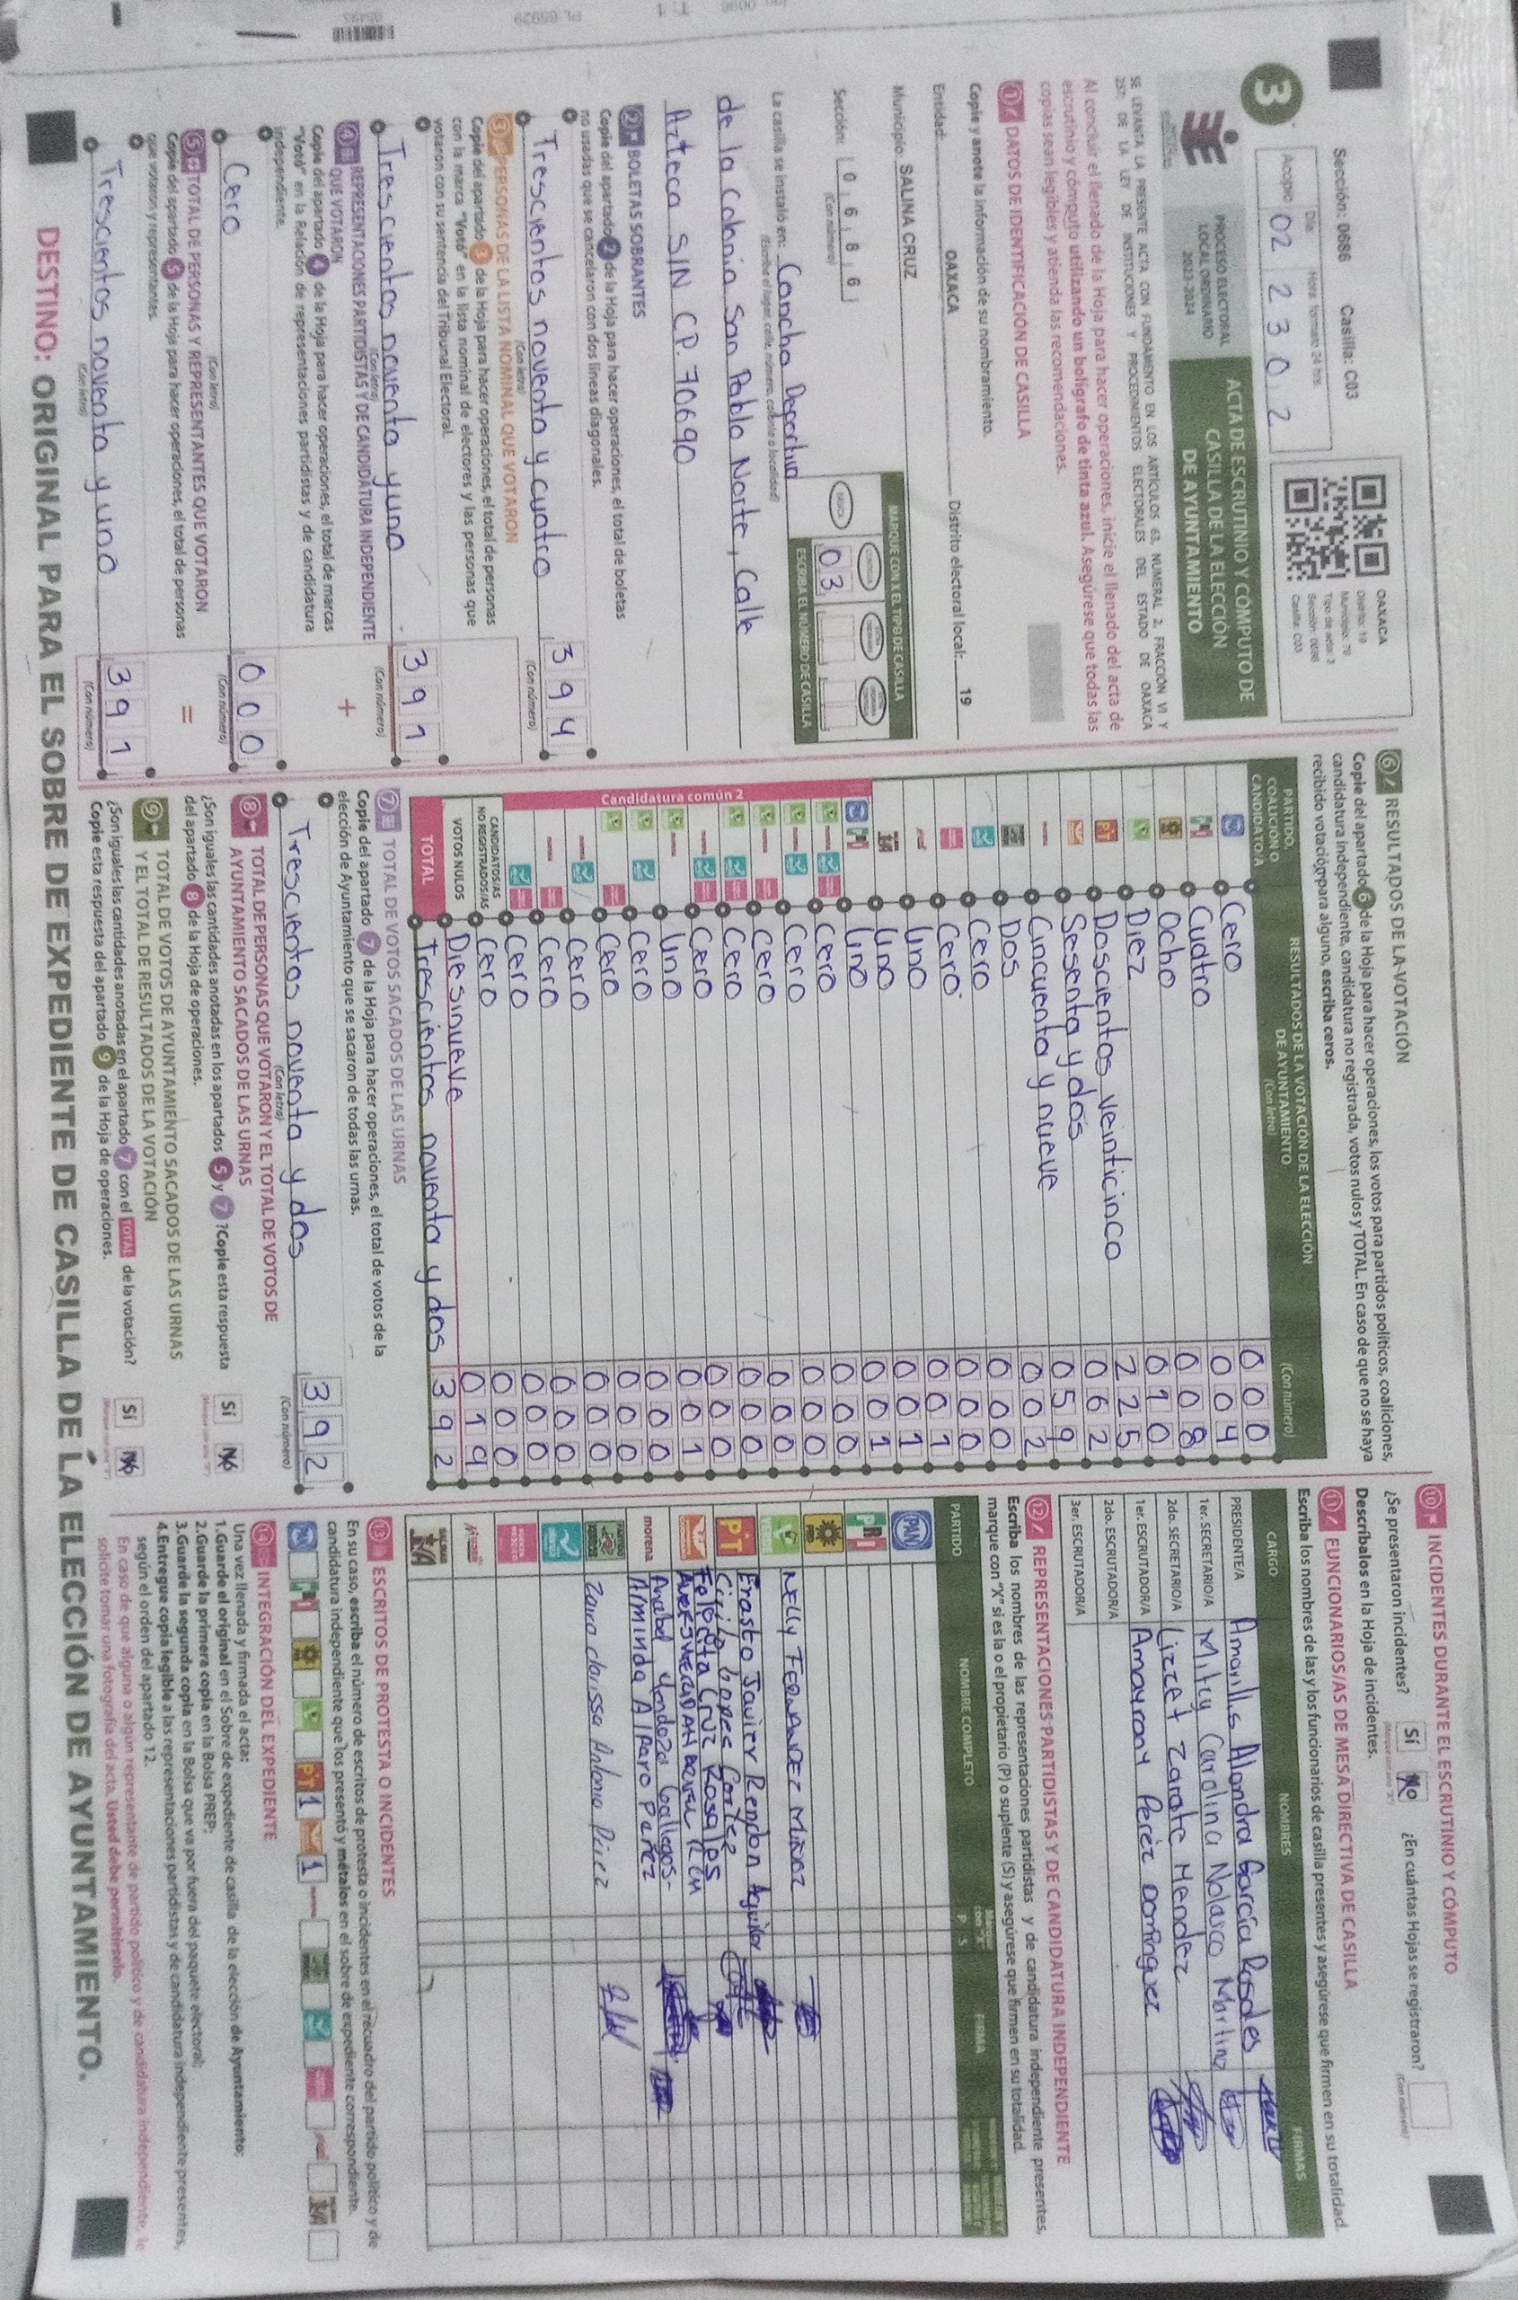 Sección: 0686 Casilla: C03
Día Hora: formato 24 hrs.
Acopio 02 23 02
3
OAXACA
Distrito: 19
Municipio: 79
Tipo de acta: 3
Sección: 0686
Casilla: C03
PROCESO ELECTORAL
LOCAL ORDINARIO
2023-2024
ACTA DE ESCRUTINIO Y CÓMPUTO DE
CASILLA DE LA ELECCIÓN
DE AYUNTAMIENTO
SE LEVANTA LA PRESENTE ACTA CON FUNDAMENTO EN LOS ARTÍCULOS 63, NUMERAL 2, FRACCIÓN VI Y
257; DE LA LEY DE INSTITUCIONES Y PROCEDIMIENTOS ELECTORALES DEL ESTADO DE OAXACA
Al concluir el llenado de la Hoja para hacer operaciones, inicie el llenado del acta de
escrutinio y cómputo utilizando un bolígrafo de tinta azul. Asegúrese que todas las
copias sean legibles y atienda las recomendaciones.
1 DATOS DE IDENTIFICACIÓN DE CASILLA
Copie y anote la información de su nombramiento.
Entidad: OAXACA Distrito electoral local: 19
Municipio: SALINA CRUZ
Sección: 0686
(Con número)
MARQUE CON X EL TIPO DE CASILLA
ESCRIBA EL NÚMERO DE CASILLA
03
La casilla se instaló en: Cancha Deportiva
(Escriba el lugar, calle, número, colonia o localidad)
de la Colonia San Pablo Norte, Calle
Azteca SIN CP. 70690
2 BOLETAS SOBRANTES
Copie del apartado 2 de la Hoja para hacer operaciones, el total de boletas
no usadas que se cancelaron con dos líneas diagonales.
Trescientos noventa y cuatro 394
(Con letra) (Con número)
3 PERSONAS DE LA LISTA NOMINAL QUE VOTARON
Copie del apartado 3 de la Hoja para hacer operaciones, el total de personas
con la marca "Votó" en la lista nominal de electores y las personas que
votaron con su sentencia del Tribunal Electoral.
Trescientos noventa y uno 391
(Con letra) (Con número)
4 REPRESENTACIONES PARTIDISTAS Y DE CANDIDATURA INDEPENDIENTE
QUE VOTARON
Copie del apartado 4 de la Hoja para hacer operaciones, el total de marcas
"Votó" en la Relación de representaciones partidistas y de candidatura
independiente. +
Cero 000
(Con letra) (Con número)
5 TOTAL DE PERSONAS Y REPRESENTANTES QUE VOTARON
Copie del apartado 5 de la Hoja para hacer operaciones, el total de personas
que votaron y representantes. =
Trescientos noventa y uno 391
(Con letra) (Con número)
6 RESULTADOS DE LA VOTACIÓN
Copie del apartado 6 de la Hoja para hacer operaciones, los votos para partidos políticos, coaliciones,
candidatura independiente, candidatura no registrada, votos nulos y TOTAL. En caso de que no se haya
recibido votación para alguno, escriba ceros.
PARTIDO,
COALICIÓN O
CANDIDATO/A
RESULTADOS DE LA VOTACIÓN DE LA ELECCIÓN
DE AYUNTAMIENTO
(Con letra) (Con número)
Cero 000
Cuatro 004
Ocho 008
Diez 010
Doscientos veinticinco 225
Sesenta y dos 062
Cincuenta y nueve 059
Dos 002
Cero 000
Cero 000
Uno 001
Uno 001
Uno 001
Cero 000
Cero 000
Cero 000
Cero 000
Cero 000
Uno 001
Cero 000
Cero 000
Cero 000
Cero 000
Cero 000
Candidatura común 2
CANDIDATOS/AS
NO REGISTRADOS/AS Cero 000
VOTOS NULOS Diesinueve 019
TOTAL Trescientos noventa y dos 392
7 TOTAL DE VOTOS SACADOS DE LAS URNAS
Copie del apartado 7 de la Hoja para hacer operaciones, el total de votos de la
elección de Ayuntamiento que se sacaron de todas las urnas.
Trescientos noventa y dos 392
(Con letra) (Con número)
8 TOTAL DE PERSONAS QUE VOTARON Y EL TOTAL DE VOTOS DE
AYUNTAMIENTO SACADOS DE LAS URNAS
¿Son iguales las cantidades anotadas en los apartados 5 y 7 ? Copie esta respuesta
del apartado 8 de la Hoja de operaciones.
Sí No
9 TOTAL DE VOTOS DE AYUNTAMIENTO SACADOS DE LAS URNAS
Y EL TOTAL DE RESULTADOS DE LA VOTACIÓN
¿Son iguales las cantidades anotadas en el apartado 7 con el TOTAL de la votación?
Copie esta respuesta del apartado 9 de la Hoja de operaciones.
Sí No
10 INCIDENTES DURANTE EL ESCRUTINIO Y CÓMPUTO
¿Se presentaron incidentes? Sí No ¿En cuántas Hojas se registraron?
Descríbalos en la Hoja de incidentes.
11 FUNCIONARIOS/AS DE MESA DIRECTIVA DE CASILLA
Escriba los nombres de las y los funcionarios de casilla presentes y asegúrese que firmen en su totalidad.
CARGO NOMBRES FIRMAS
PRESIDENTE/A Amarillis Alondra García Rosales
1er. SECRETARIO/A Mitcy Carolina Nolasco Martinez
2do. SECRETARIO/A Lizzet Zarate Mendez
1er. ESCRUTADOR/A Amayrany Perez Dominguez
2do. ESCRUTADOR/A
3er. ESCRUTADOR/A
12 REPRESENTACIONES PARTIDISTAS Y DE CANDIDATURA INDEPENDIENTE
Escriba los nombres de las representaciones partidistas y de candidatura independiente presentes,
marque con "X" si es la o el propietario (P) o suplente (S) y asegúrese que firmen en su totalidad.
PARTIDO NOMBRE COMPLETO P S FIRMA
PAN
PRI
PRD
NELLY FERNANDEZ MUÑOZ
PT Erasto Javier Rendon Aguilar
Cirilo Lopez Cortez
Felicita Cruz Rosales
morena Anabel Mendoza Gallegos
Arminda Alparo Perez
Zaira clarissa Antonio Perez
13 ESCRITOS DE PROTESTA O INCIDENTES
En su caso, escriba el número de escritos de protesta o incidentes en el recuadro del partido político y de
candidatura independiente que los presentó y métalos en el sobre de expediente correspondiente.
PT 1 1
14 INTEGRACIÓN DEL EXPEDIENTE
Una vez llenada y firmada el acta:
1.Guarde el original en el Sobre de expediente de casilla de la elección de Ayuntamiento;
2.Guarde la primera copia en la Bolsa PREP;
3.Guarde la segunda copia en la Bolsa que va por fuera del paquete electoral;
4.Entregue copia legible a las representaciones partidistas y de candidatura independiente presentes,
según el orden del apartado 12.
En caso de que alguna o algún representante de partido político y de candidatura independiente, le
solicite tomar una fotografía del acta, Usted debe permitírselo.
DESTINO: ORIGINAL PARA EL SOBRE DE EXPEDIENTE DE CASILLA DE LA ELECCIÓN DE AYUNTAMIENTO.